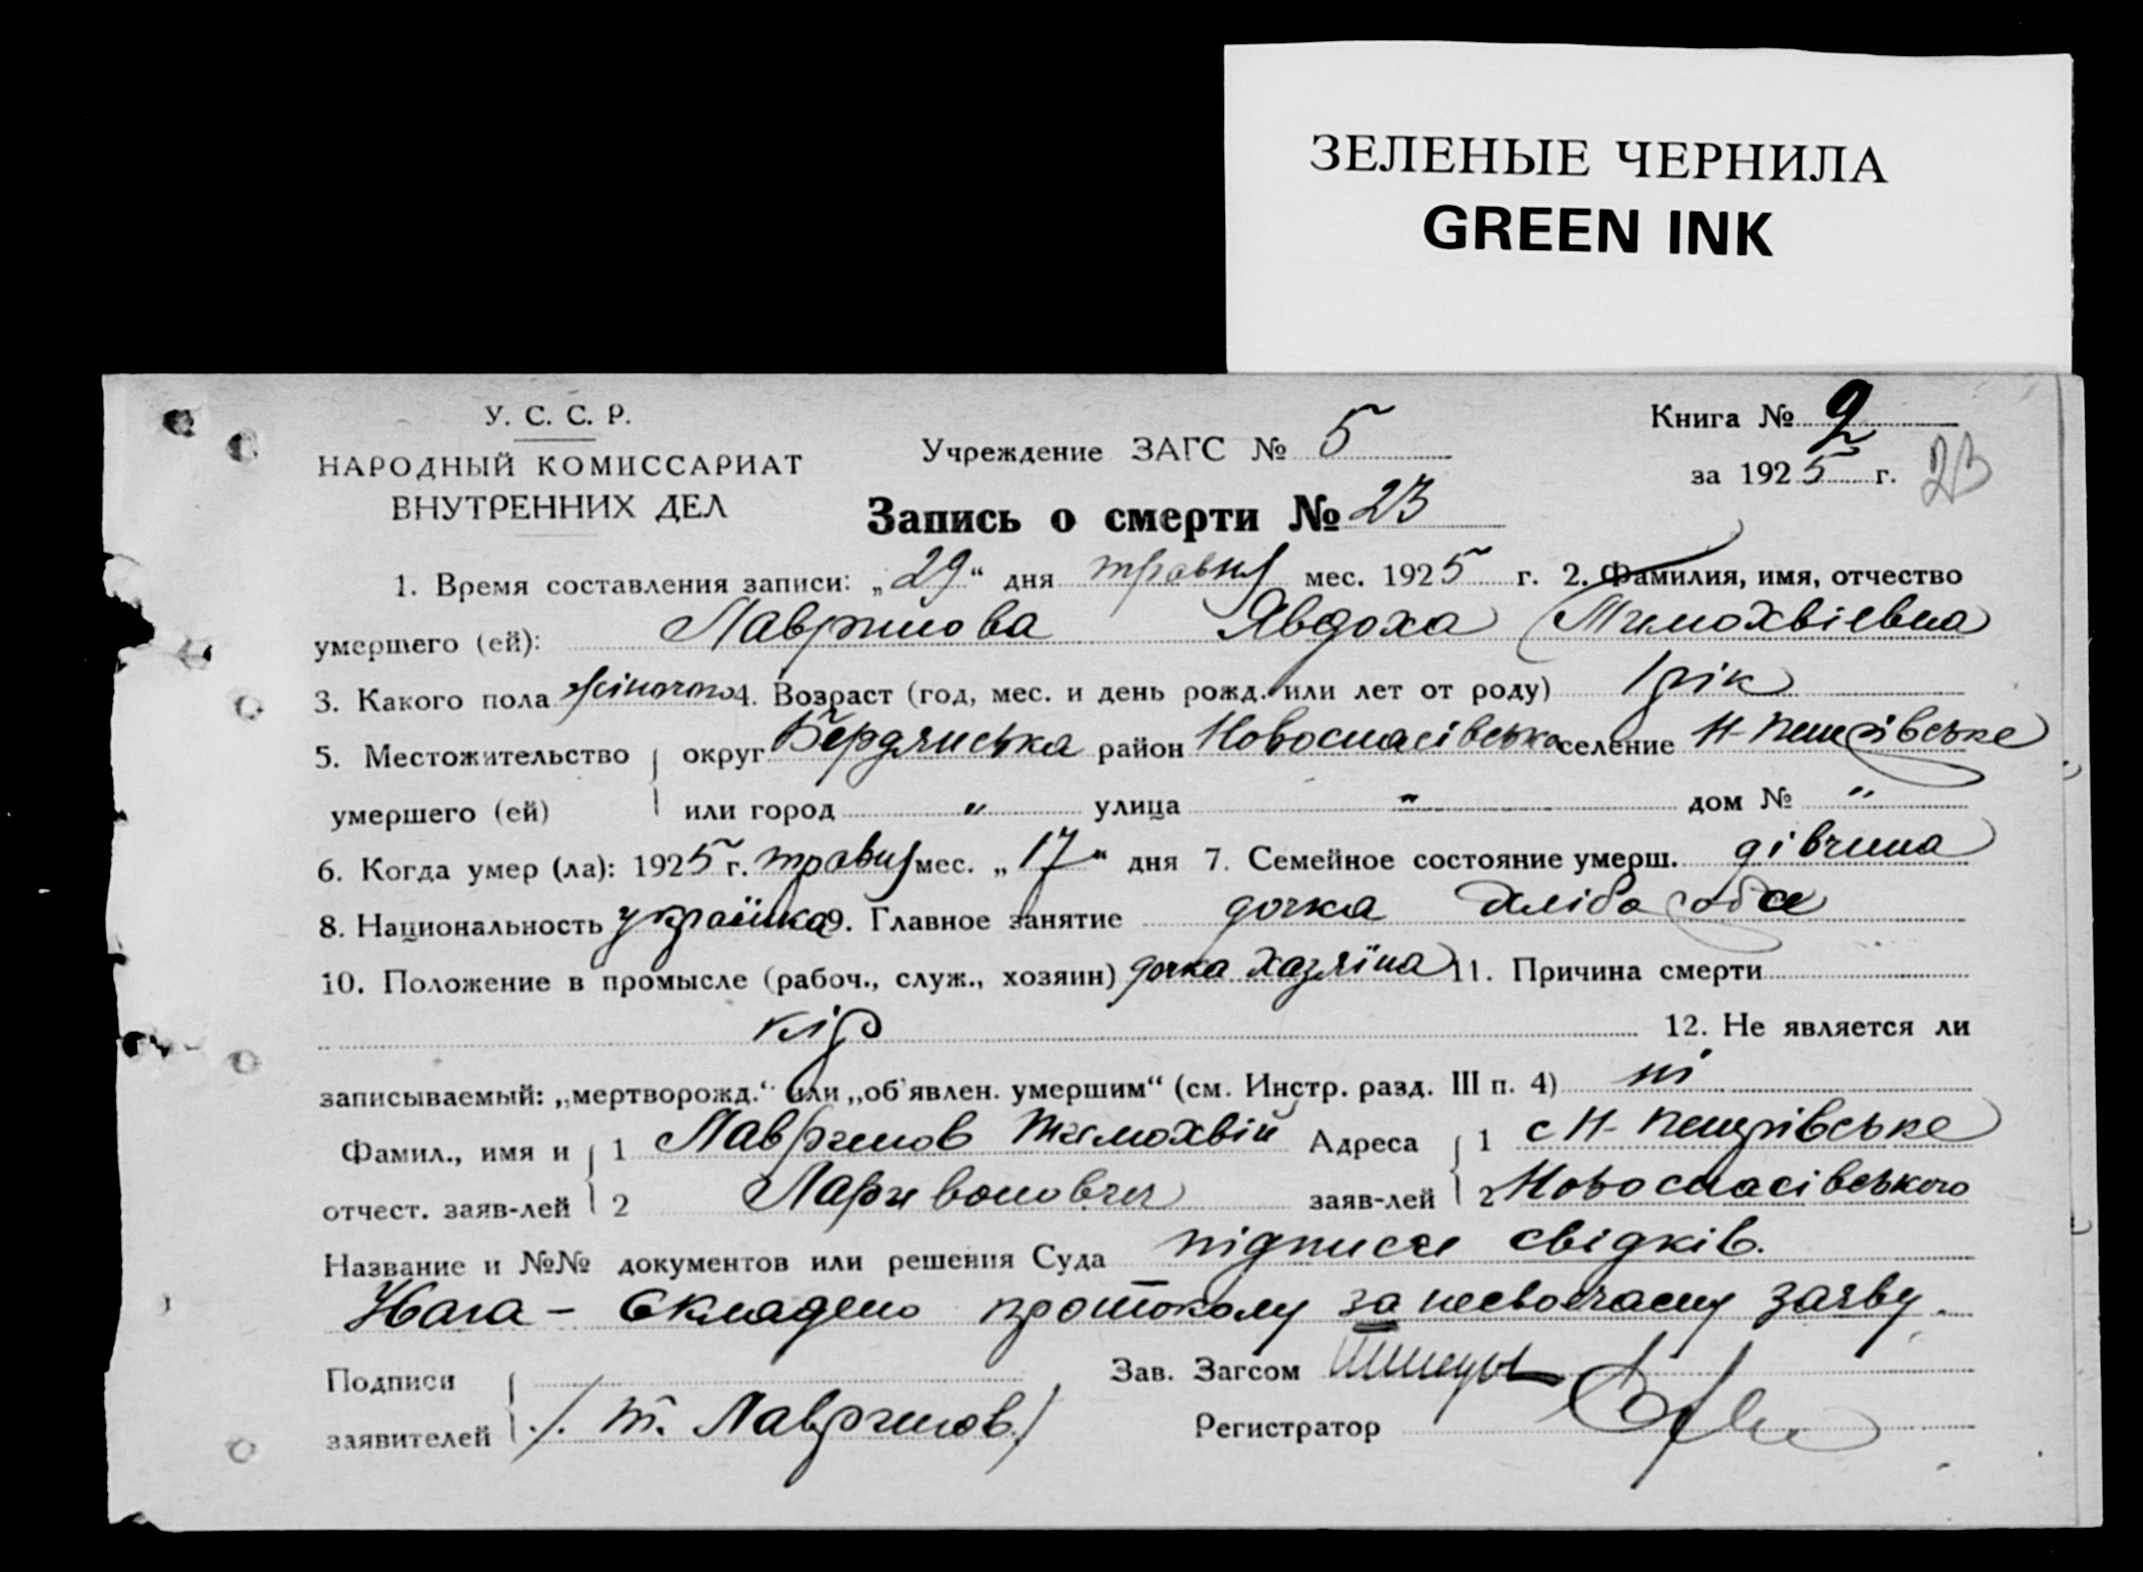 ЗЕЛЕНЫЕ ЧЕРНИЛА
GREEN INK
У. С. С. Р.
НАРОДНЫЙ КОМИССАРИАТ
ВНУТРЕННИХ ДЕЛ
Учреждение ЗАГС № 5
Книга № 2
за 1925 г. 23
Запись о смерти № 23
1. Время составления записи: „29“ дня травня мес. 1925 г. 2. Фамилия, имя, отчество
умершего (ей): Лавринова Явдоха Тимохвіевна
3. Какого пола жіночого 4. Возраст (год, мес. и день рожд. или лет от роду) 1 рік
5. Местожительство округ Бердянська район Новоспасівська селение Н-Петрівське
умершего (ей) или город " улица " дом № "
6. Когда умер (ла): 1925 г. травня мес. „17“ дня 7. Семейное состояние умерш. дівчина
8. Национальность українка 9. Главное занятие дочка хлібороба
10. Положение в промысле (рабоч., служ., хозяин) дочка хазяїна 11. Причина смерти
кір 12. Не является ли
записываемый: „мертворожд.“ или „об'явлен. умершим“ (см. Инстр. разд. III п. 4) ні
Фамил., имя и 1 Лавринов Тимохвій Адреса 1 с Н-Петрівське
отчест. заяв-лей 2 Ларивонович заяв-лей 2 Новоспасівського
Название и №№ документов или решения Суда підписи свідків.
Увага - Складено протоколу за несвоєчасну заяву.
Подписи Зав. Загсом
заявителей /. Т. Лавринов./ Регистратор